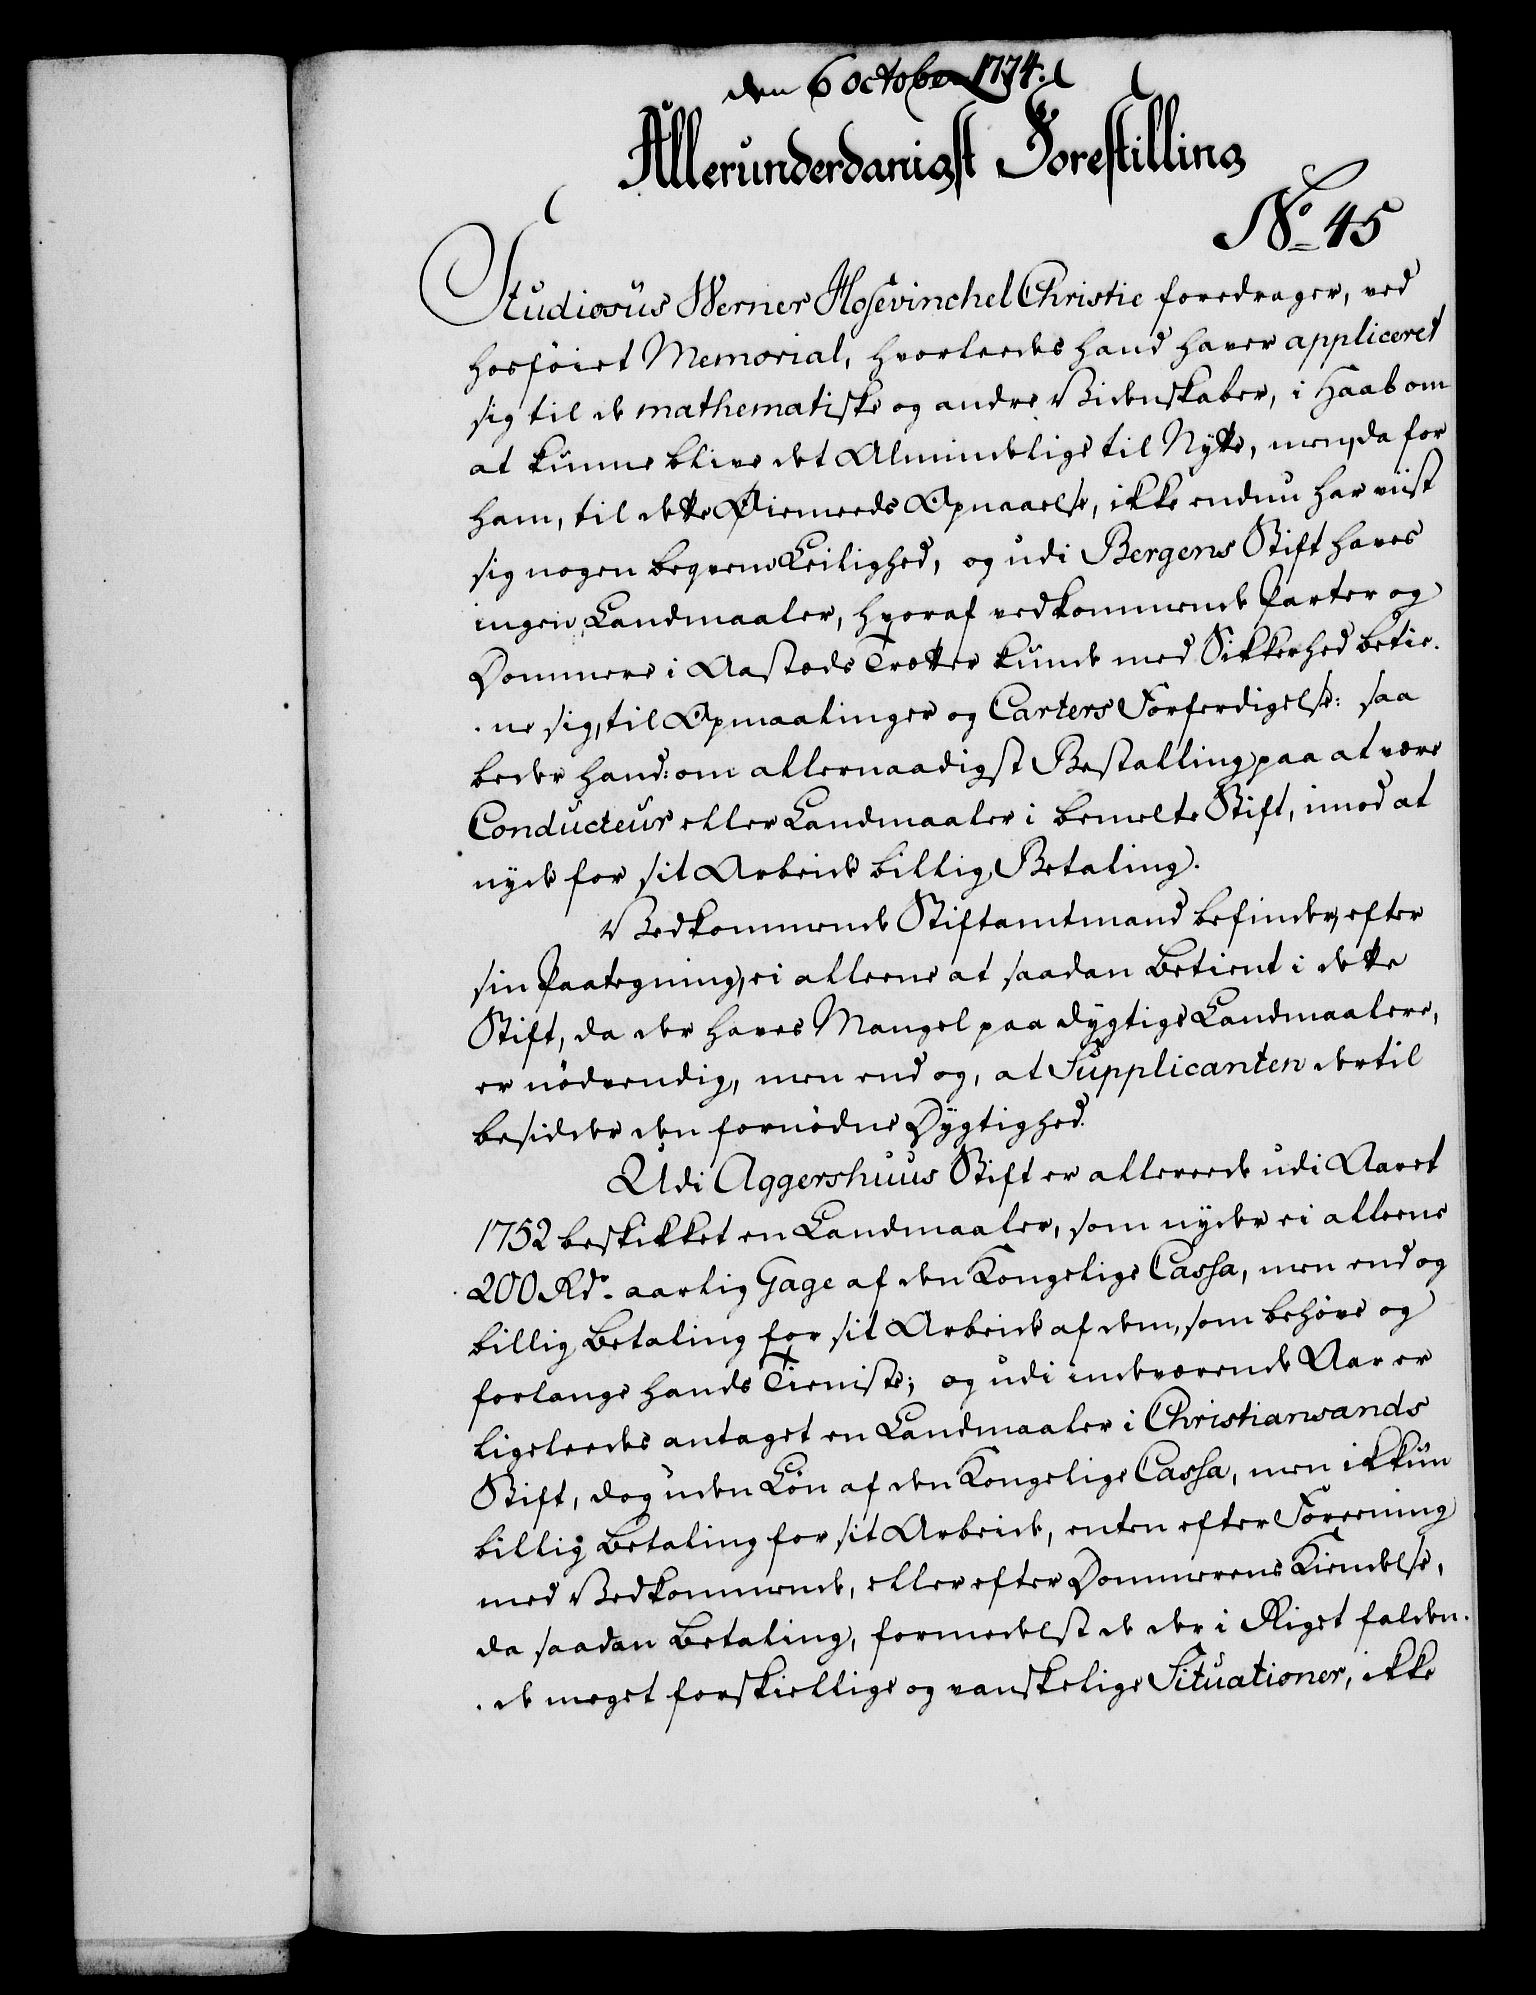 den 6 october 1774.
Allerunderdanigst Forestilling
No 45
Studiosus Werner Hosevinchel Christie foredrager, ved
hosföiet Memorial, hvorleedes hand haver appliceret
sig til de mathematiske og andre Videnskaber, i Haab om
at kunne blive det Almindelige til Nytte, men, da for
ham, til dette Øiemeeds Opnaaelse, ikke endnu har viist
sig nogen beqvem Leilighed, og udi Bergens Stift haves
ingen Landmaaler, hvoraf vedkommende Parter og
Dommere i Aastæds Trætter kunde med Sikkerhed betie-
-ne sig, til Opmaalinger og Carters Forferdigelse: saa
beder hand: om allernaadigst Bestalling paa at være
Conducteur eller Landmaaler i bemelte Stift, imod at
nyde for sit Arbeide billig Betaling.
Vedkommende Stiftamtmand befinder, efter
sin Paategning, ei alleene at saadan Betient i dette
Stift, da der haves Mangel paa dygtige Landmaalere,
er nödvendig, men end og, at Supplicanten dertil
besidder den fornödne Dygtighed.
Udi Aggershuus Stift er allereede udi Aaret
1752 beskikket en Landmaaler, som nyder ei alleene
200 Rdr. aarlig Gage af den Kongelige Cassa, men end og
billig Betaling for sit Arbeide af dem, som behöve og
forlange hands Tieniste; og udi indeværende Aar er
ligeleedes antaget en Landmaaler i Christiansands
Stift, dog uden Lön af den Kongelige Cassa, men ikkun
billig Betaling for sit Arbeide, enten efter Foreening
med Vedkommende, eller efter Dommerens Kiendelse,
da saadan Betaling, formedelst de der i Riget falden-
-de meget forskiellige og vanskelige Situationer, ikke